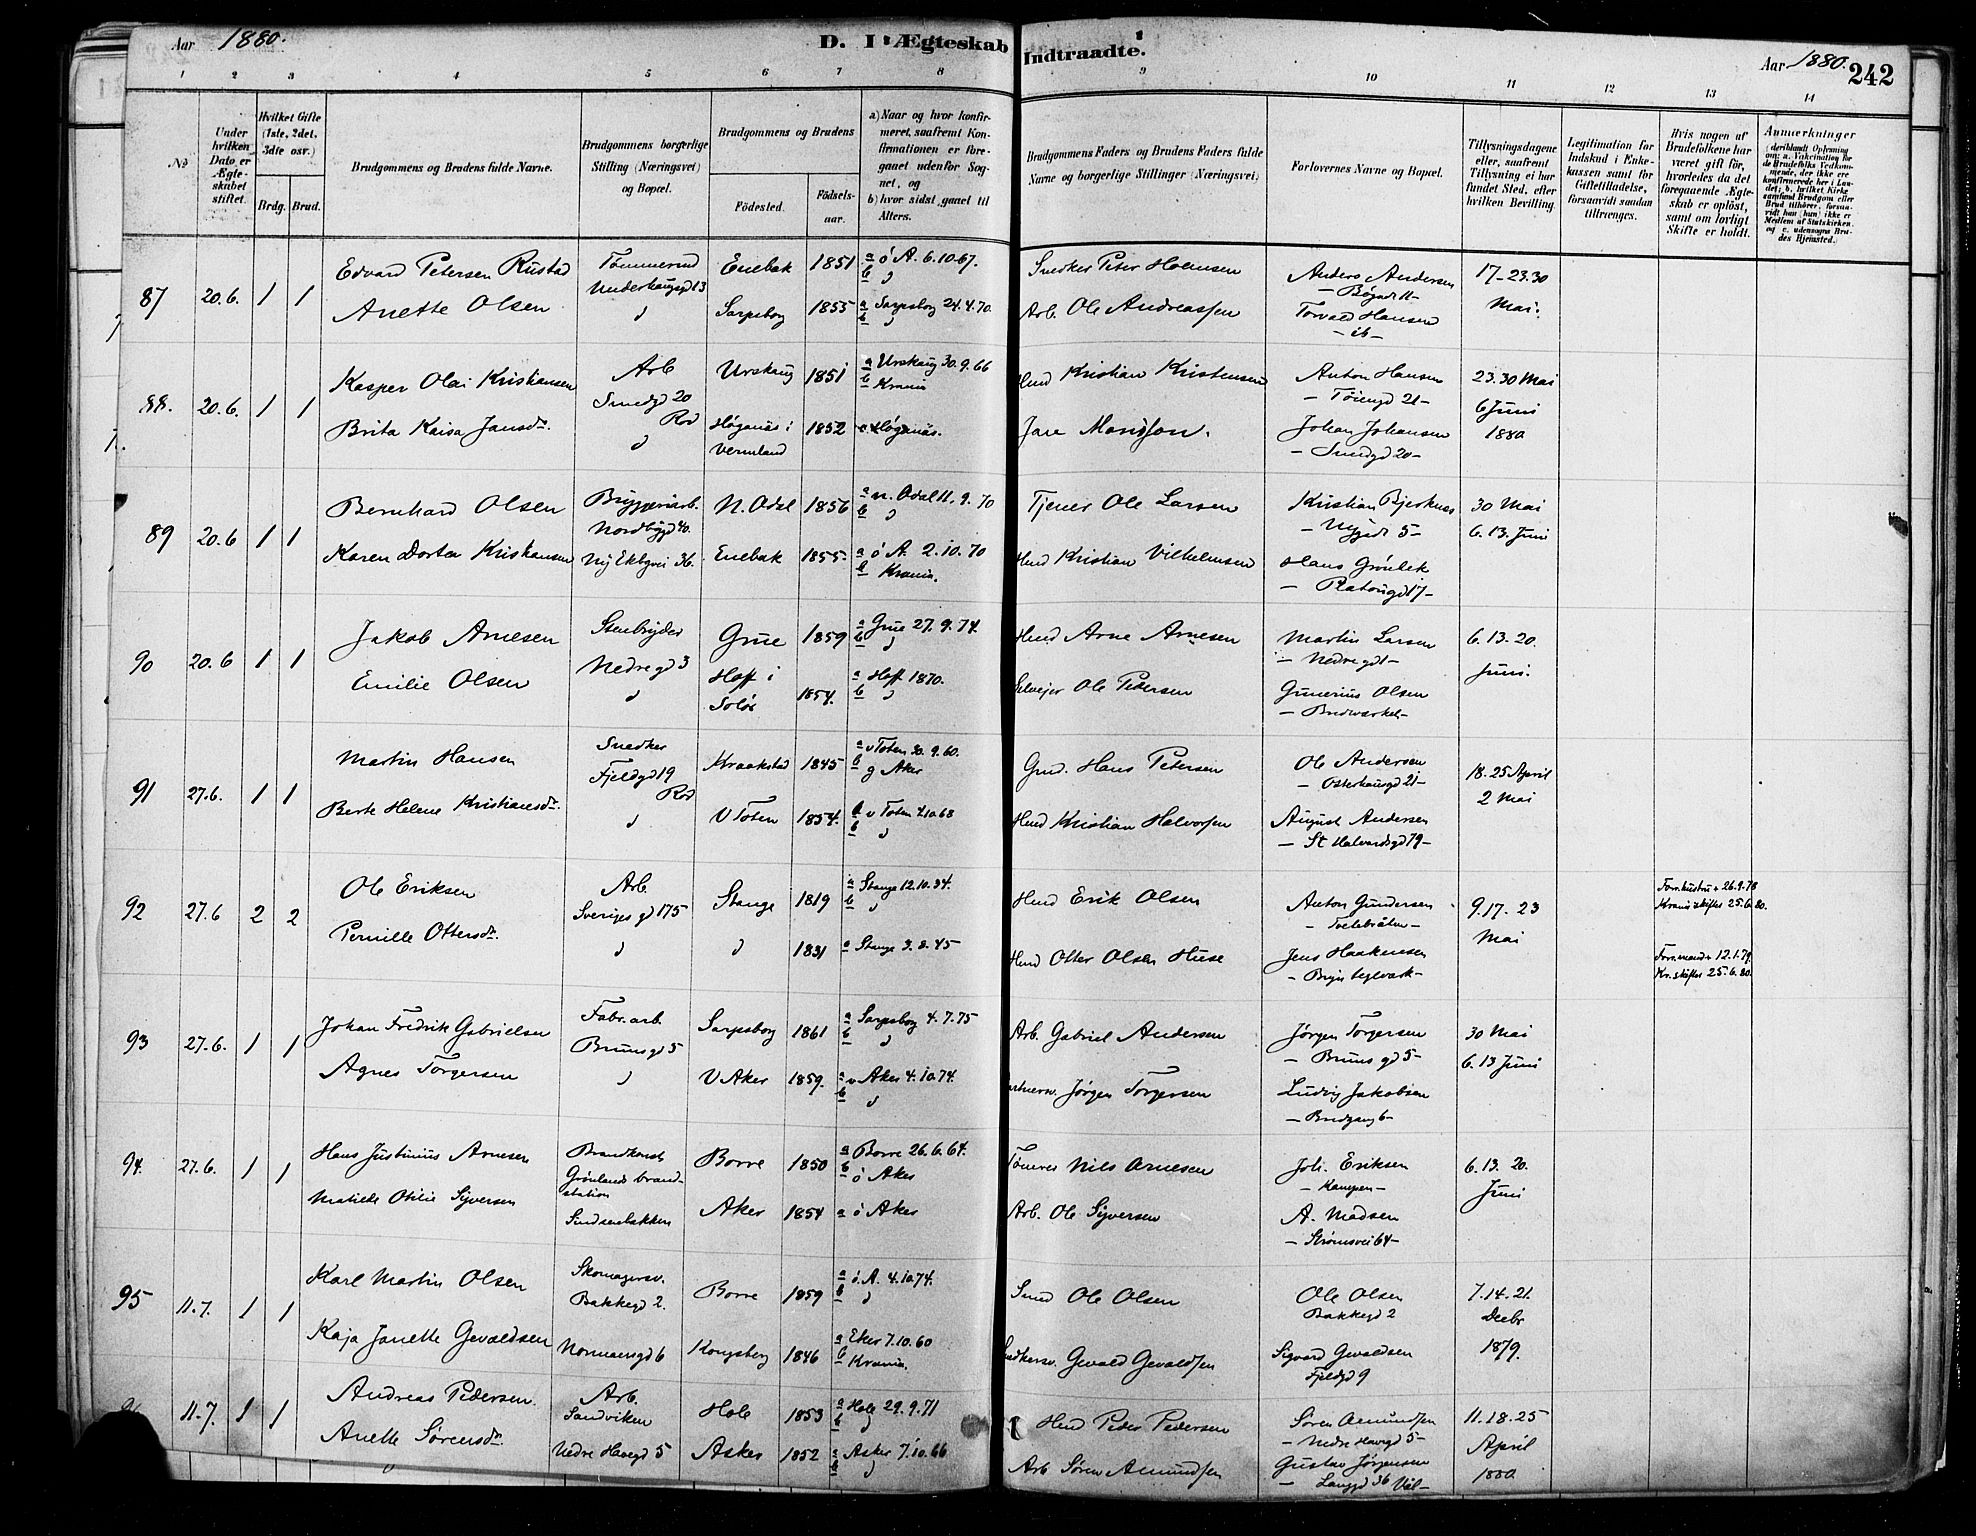 Aar 1880.
D. I Ægteskab Indtraadte.
Aar 1880.
242
1 2 3 4 5 6 7 8 9 10 11 12 13 14
No
Under hvilken Dato er Ægteskabet stiftet.
Hvilket Gifte (1ste, 2det, 3die osv.)
Brdg. Brud.
Brudgommens og Brudens fulde Navne.
Brudgommens borgerlige Stilling (Næringsvei) og Bopæl.
Brudgommens og Brudens
Fødested.
Fødselsaar.
a) Naar og hvor konfirmeret, saafremt Konfirmationen er foregaaet udenfor Sognet, og
b) hvor sidst gaaet til Alters.
Brudgommens Faders og Brudens Faders fulde Navne og borgerlige Stillinger (Næringsvei)
Forlovernes Navne og Bopæl.
Tillysningsdagene eller, saafremt Tillysning ei har fundet Sted, efter hvilken Bevilling.
Legitimation for Indskud i Enkekassen samt for Giftetilladelse, forsaavidt saadan tiltrænges.
Hvis nogen af Brudefolkene har været gift før, hvorledes da det foregaaende Ægteskab er opløst, samt om lovligt Skifte er holdt.
Anmærkninger
87 20.6. 1 1
Edvard Petersen Rustad
Tømmermd
Enebak 1851
a ø A. 6.10.67.
Snedker Peter Holmsen
Anders Andersen
17-23.30
Mai.
Anette Olsen
Sarpsborg 1855
a Sarpsborg 24.4.70.
Arb. Ole Andreassen
Torvald Hansen
- ib -
88. 20.6. 1 1
Kasper Olai Kristiansen
Arb
Smedgd 20
Urskaug 1851
a Urskaug 30.9.66
b Krania
Hmd Kristian Kristensen
Anton Hansen
- Tøiengd 21 -
23.30 Mai
6 Juni
1880
Brita Kaisa Jansdr.
Høganäs i Vermland
1852
Høganäs.
Johan Johansen
- Smedgd 20 -
89 20.6 1 1
Bernhard Olsen
Bryggeriarb.
Nordbygd 40.
N. Odal 1856
a n. Odal 11.9.70
Tjener Ole Larsen
30 Mai
6.13. Juni
Karen Dortea Kristiansen
Ny Ekbgvei 36.
Enebak 1855.
a ø A. 2.10.70
b Krania.
Hmd Kristian Vilhelmsen
Hans Grønbek
- Platougd 17 -
90 20.6 1 1
Jakob Arnesen
Stenbryder
Nedregd 3
Grue 1859
a Grue 27.9.74.
Hmd Arne Arnesen
Martin Larsen
- Nedregd 1 -
6.13.20.
Juni.
Emilie Olsen
Hoff i Solør
1854.
a Hoff 1870.
Selveier Ole Pedersen
Gunerius Olsen
91 27.6. 1 1
Martin Hansen
Snedker
Fjeldgd 19
Kraakstad 1845
a v Toten 30.9.60.
b g Aker
Gmd. Hans Petersen
Ole Andersen
- Osterhausgd 21 -
18.25 April
2 Mai
Berte Helene Kristiansdr.
V Toten 1854.
a v Toten 4.10.68
Hmd Kristian Halvorsen
August Andersen
- St Halvardsgd 79 -
92 27.6 2 2
Ole Eriksen
Arb.
Sverigesgd 175
Stange 1819
a Stange 12.10.34.
Hmd Erik Olsen
Anton Gundersen
9.17.23
Mai
Forr. hustru + 26.9.78
Krania skiftet 25.6.80.
Pernille Ottersdr.
1831
a Stange 3.8.45
Hmd Otter Olsen Huse
Jens Haakensen
- Bryn teglværk -
Forr. mand + 12.1.79
Kr. skiftet 25.6.80.
93 27.6. 1 1
Johan Fredrik Gabrielsen
Fabr. arb.
Brunsgd 5
Sarpsborg 1861
a Sarpsborg 4.7.75
Arb. Gabriel Andersen
Jørgen Torgersen
- Brunsgd 5 -
30 Mai
6.13 Juni
Agnes Torgersen
V Aker 1859.
a v Aker 4.10.74.
Jørgen Torgersen
Ludvig Jakobsen
- Bredgang 6 -
94. 27.6. 1 1
Hans Justinius Arnesen
Brandkonst
Grønlands brandstation
Borre 1850
a Borre 26.6.64.
b ø Aker
Nils Arnesen
Joh. Eriksen
- Kampen -
6.13.20.
Juni
Matilde Otilie Syversen
Sindsenbakken
Aker 1854
a ø Aker
Arb. Ole Syversen
A. Madsen
- Strømsvei 64 -
95 11.7. 1 1
Karl Martin Olsen
Skomagersv.
Bakkegd 2.
Borre 1859
a ø. A. 4.10.74.
Smed Ole Olsen
Ole Olsen
Bakkegd 2
7.14.21.
Decbr
1879.
Kaja Janette Gevaldsen
Normannsgd 6
Kongsberg 1846
a Eker 7.10.60
b Krania.
Gevald Gevaldsen
Sigvard Gevaldsen
Fjeldgd 9
11.7. 1 1
Andreas Pedersen
Arb.
Sandviken
Hole 1853
a Hole 29.9.71
Hmd Peder Pedersen
Søren Amundsen
- Nedre Havegd 5 -
11.18.25
April
1880
Anette Sørensdr
Nedre Havegd 5
Asker 1852
a Asker 7.10.66
Arb Søren Amundsen
Gustav Jørgensen